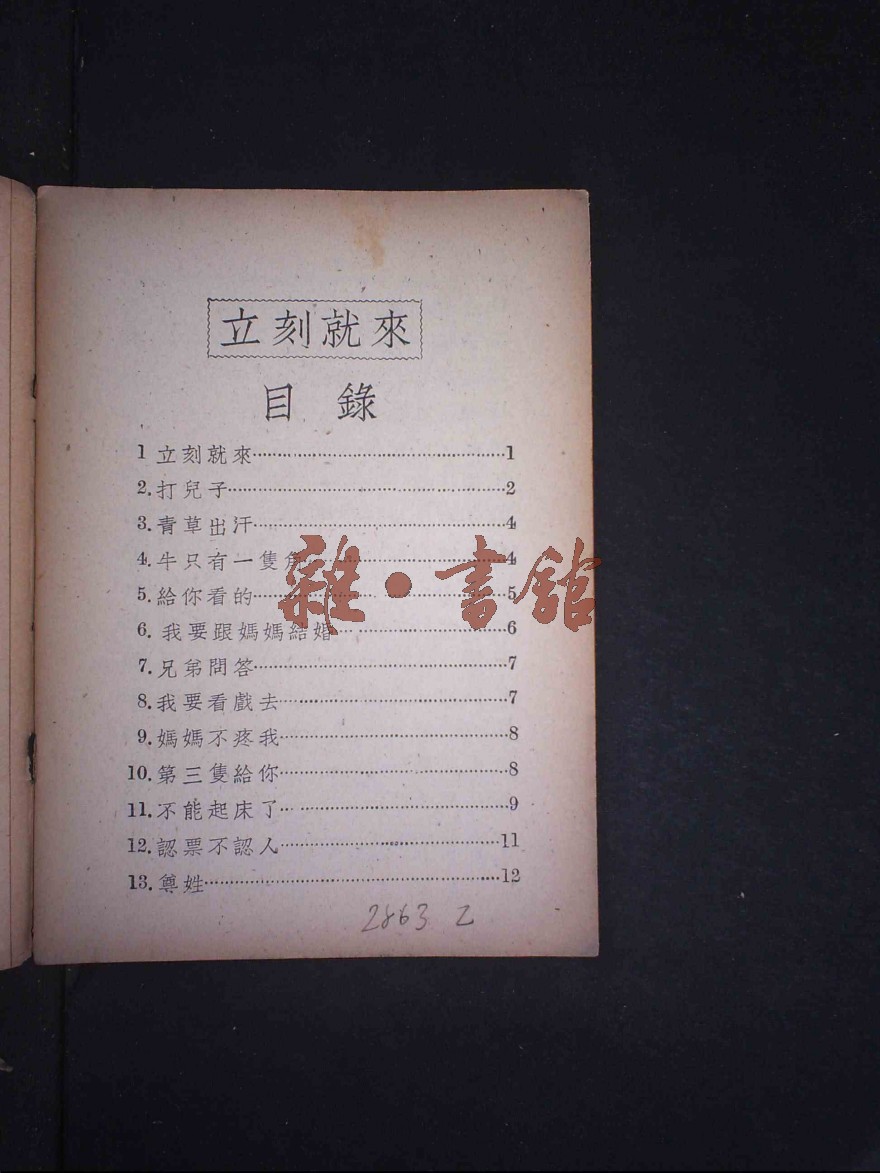 立刻就來
目錄
1 立刻就來……1
2.打兒子……2
3.青草出汗……4
4.牛只有一隻角……4
5.給你看的……5
6.我要跟媽媽結婚……6
7.兄弟問答……7
8.我要看戲去……7
9.媽媽不疼我……8
10.第三隻給你……8
11.不能起床了……9
12.認票不認人……11
13.尊姓……12
雜·書館
2863 乙